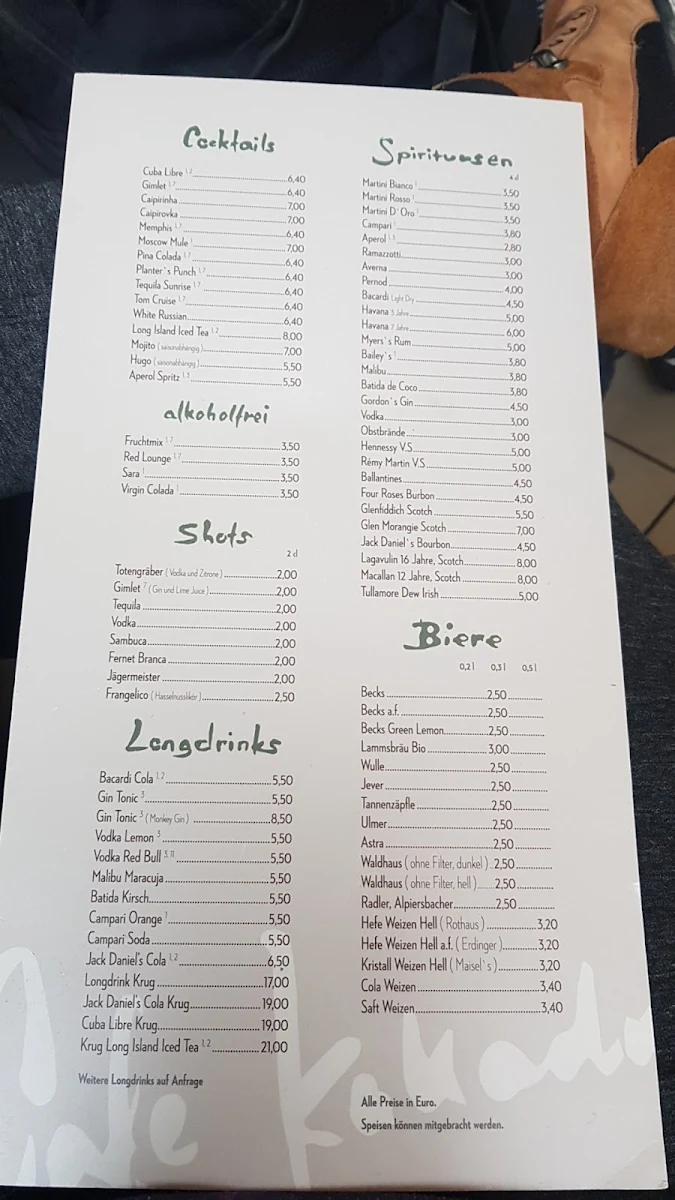 Cocktails
Cuba Libre 1,2 6,40
Gimlet 1,7 6,40
Caipirinha 7,00
Caipirovka 7,00
Memphis 1,7 6,40
Moscow Mule 1 7,00
Pina Colada 1,7 6,40
Planter's Punch 1,7 6,40
Tequila Sunrise 1,7 6,40
Tom Cruise 1,7 6,40
White Russian 6,40
Long Island Iced Tea 1,2 8,00
Mojito (saisonabhängig) 7,00
Hugo (saisonabhängig) 5,50
Aperol Spritz 1,3 5,50
alkoholfrei
Fruchtmix 1,7 3,50
Red Lounge 1,7 3,50
Sara 1 3,50
Virgin Colada 1 3,50
Shots
2 cl
Totengräber (Vodka und Zitrone) 2,00
Gimlet 7 (Gin und Lime Juice) 2,00
Tequila 2,00
Vodka 2,00
Sambuca 2,00
Fernet Branca 2,00
Jägermeister 2,00
Frangelico (Hasselnusslikör) 2,50
Longdrinks
Bacardi Cola 1,2 5,50
Gin Tonic 3 5,50
Gin Tonic 3 (Monkey Gin) 8,50
Vodka Lemon 3 5,50
Vodka Red Bull 3, 11 5,50
Malibu Maracuja 5,50
Batida Kirsch 5,50
Campari Orange 1 5,50
Campari Soda 5,50
Jack Daniel's Cola 1,2 6,50
Longdrink Krug 17,00
Jack Daniel's Cola Krug 19,00
Cuba Libre Krug 19,00
Krug Long Island Iced Tea 1,2 21,00
Weitere Longdrinks auf Anfrage
Spirituosen
4 cl
Martini Bianco 1 3,50
Martini Rosso 1 3,50
Martini D'Oro 1 3,50
Campari 1 3,80
Aperol 1,3 2,80
Ramazzotti 3,00
Averna 3,00
Pernod 4,00
Bacardi Light Dry 4,50
Havana 3 Jahre 5,00
Havana 7 Jahre 6,00
Myers's Rum 5,00
Bailey's 1 3,80
Malibu 3,80
Batida de Coco 3,80
Gordon's Gin 4,50
Vodka 3,00
Obstbrände 3,00
Hennessy V.S. 5,00
Rémy Martin V.S. 5,00
Ballantines 4,50
Four Roses Burbon 4,50
Glenfiddich Scotch 5,50
Glen Morangie Scotch 7,00
Jack Daniel's Bourbon 4,50
Lagavulin 16 Jahre, Scotch 8,00
Macallan 12 Jahre, Scotch 8,00
Tullamore Dew Irish 5,00
Biere
0,2 l 0,3 l 0,5 l
Becks 2,50
Becks a.f. 2,50
Becks Green Lemon 2,50
Lammsbräu Bio 3,00
Wulle 2,50
Jever 2,50
Tannenzäpfle 2,50
Ulmer 2,50
Astra 2,50
Waldhaus (ohne Filter, dunkel) 2,50
Waldhaus (ohne Filter, hell) 2,50
Radler, Alpiersbacher 2,50
Hefe Weizen Hell (Rothaus) 3,20
Hefe Weizen Hell a.f. (Erdinger) 3,20
Kristall Weizen Hell (Maisel's) 3,20
Cola Weizen 3,40
Saft Weizen 3,40
Alle Preise in Euro.
Speisen können mitgebracht werden.